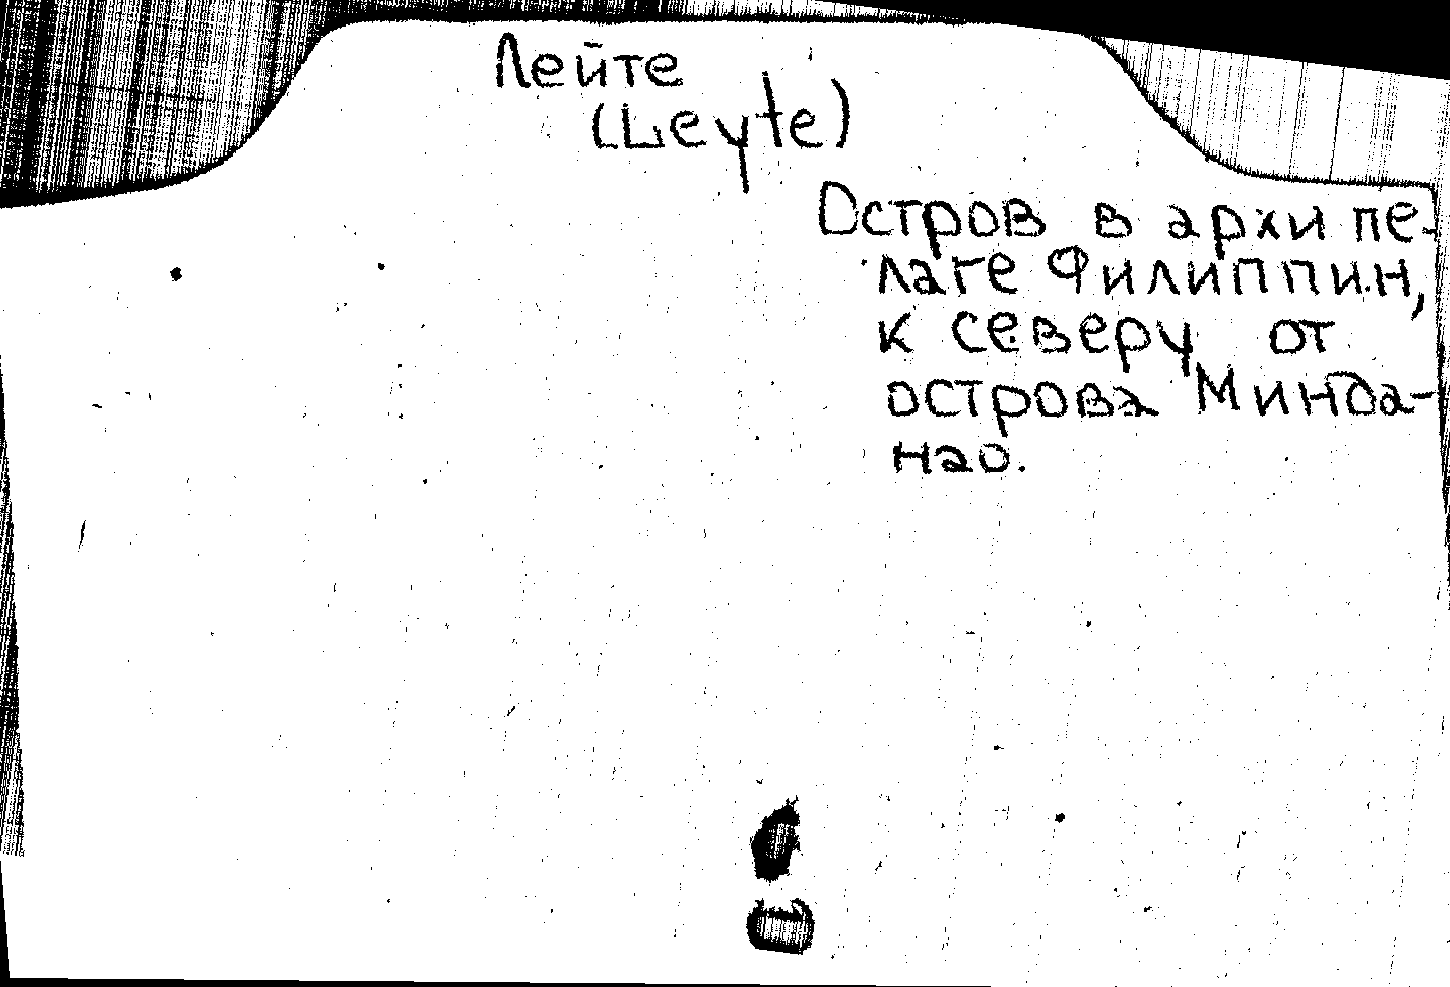 Лейте
(Leyte)
Остров в архипе-
лаге Филиппин,
к северу от
острова Минда-
нао.